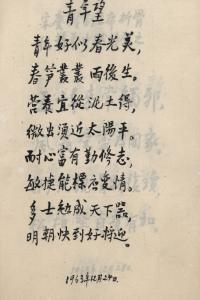 青年望
青年好似春光美，
春笋叢叢雨後生。
营养宜從泥土得，
微出須近太陽平。
耐心富有勤修志，
敏捷能標度愛情。
多士勉成天下器，
明朝快到好將迎。
1963年12月24日